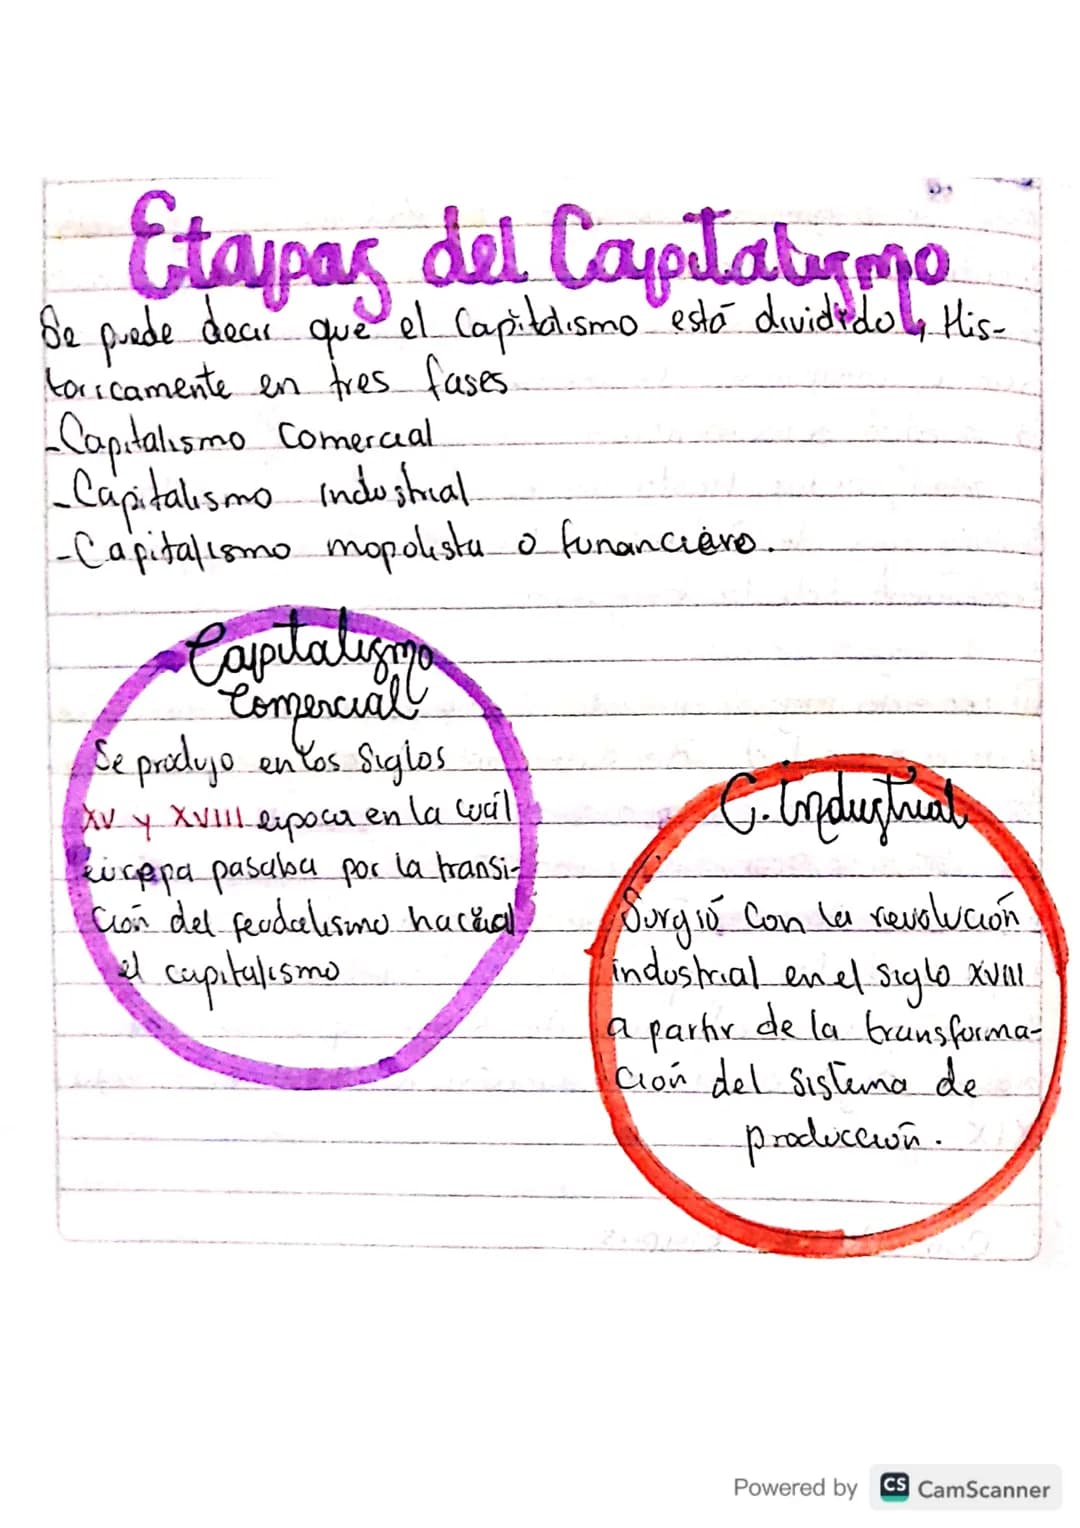 Etapas del Capitalismo
Se puede decir que el Capitalismo está dividido, His-
toricamente en tres fases
-Capitalismo Comercial
-Capitalismo industrial
-Capitalismo mopolista o funanciero.
Capitalismo
Comercial
Se produjo en los Siglos
XV y XVIII epoca en la cuál
europa pasaba por la transi-
ción del feudalismo hacia
el capitalismo
C. Industrial
Surgió Con la revolución
industrial en el siglo XVIII
a partir de la transforma-
ción del sistema de
producción.
Powered by CS CamScanner